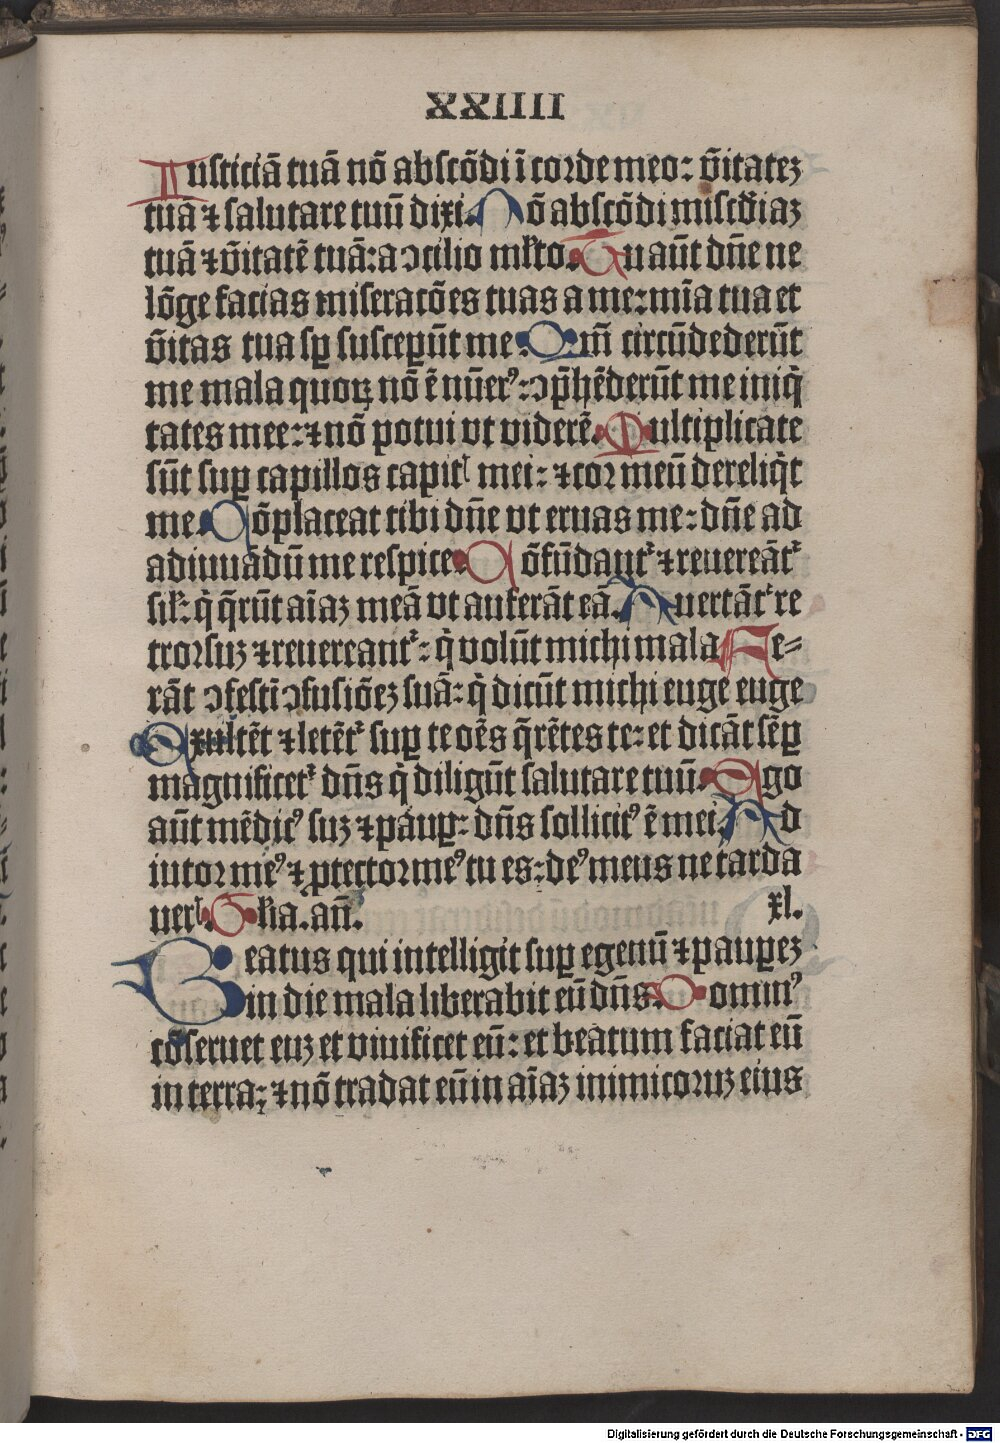 XXIIII
Iusticiā tuā nō abscōdi ī corde meo: v̄itatez
tuā ⁊ salutare tuū dixi. Nō abscōdi misc̄diaz
tuā ⁊ v̄itatē tuā: a ↄcilio ml̄to. Tu aūt dn̄e ne
lōge facias miseratōes tuas a me: mīa tua et
v̄itas tua sꝑ susceperūt me. Qm̄ circūdederūt
me mala quoꝝ nō ē nūerꝰ: ↄp̄hēderūt me iniq̄
tates mee: ⁊ nō potui vt viderē. Multiplicate
sūt suꝑ capillos capitꝭ mei: ⁊ cor meū dereliq̄t
me. Cōplaceat tibi dn̄e vt eruas me: dn̄e ad
adiuuādū me respice. Cōfūdant᷑ ⁊ reuereāt᷑
sil̄: q̄ q̄rūt aīaz meā vt auferāt eā. Auertāt᷑ re
trorsuz ⁊ reuereant᷑: q̄ volūt michi mala Fe⸗
rāt ↄfestī ↄfusiōez suā: q̄ dicūt michi euge euge
Exultēt ⁊ letēt᷑ suꝑ te oēs q̄rētes te: et dicāt sēꝑ
magnificet᷑ dn̄s q̄ diligūt salutare tuū. Ego
aūt mēdicꝰ suz ⁊ pauꝑ: dn̄s sollicitꝰ ē mei. Ad
iutor meꝰ ⁊ ꝓtector meꝰ tu es: deꝰ meus ne tarda
uerꝭ. Gl̄ia. an̄. xl.
Beatus qui intelligit suꝑ egenū ⁊ pauꝑez
in die mala liberabit eū dn̄s. Dominꝰ
cōseruet euz et viuificet eū: et beatum faciat eū
in terra: ⁊ nō tradat eū in aīaz inimicoruz eius
Digitalisierung gefördert durch die Deutsche Forschungsgemeinschaft - DFG